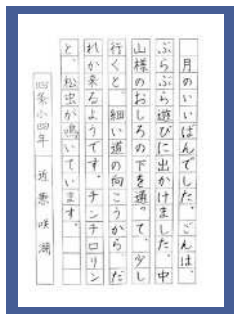 月のいいばんでした。ごんは、
ぶらぶら遊びに出かけました。中
山様のおしろの下を通って、少し
行くと、細い道の向こうから、だ
れか来るようです。チンチロリン
と、松虫が鳴いています。
四条小四年